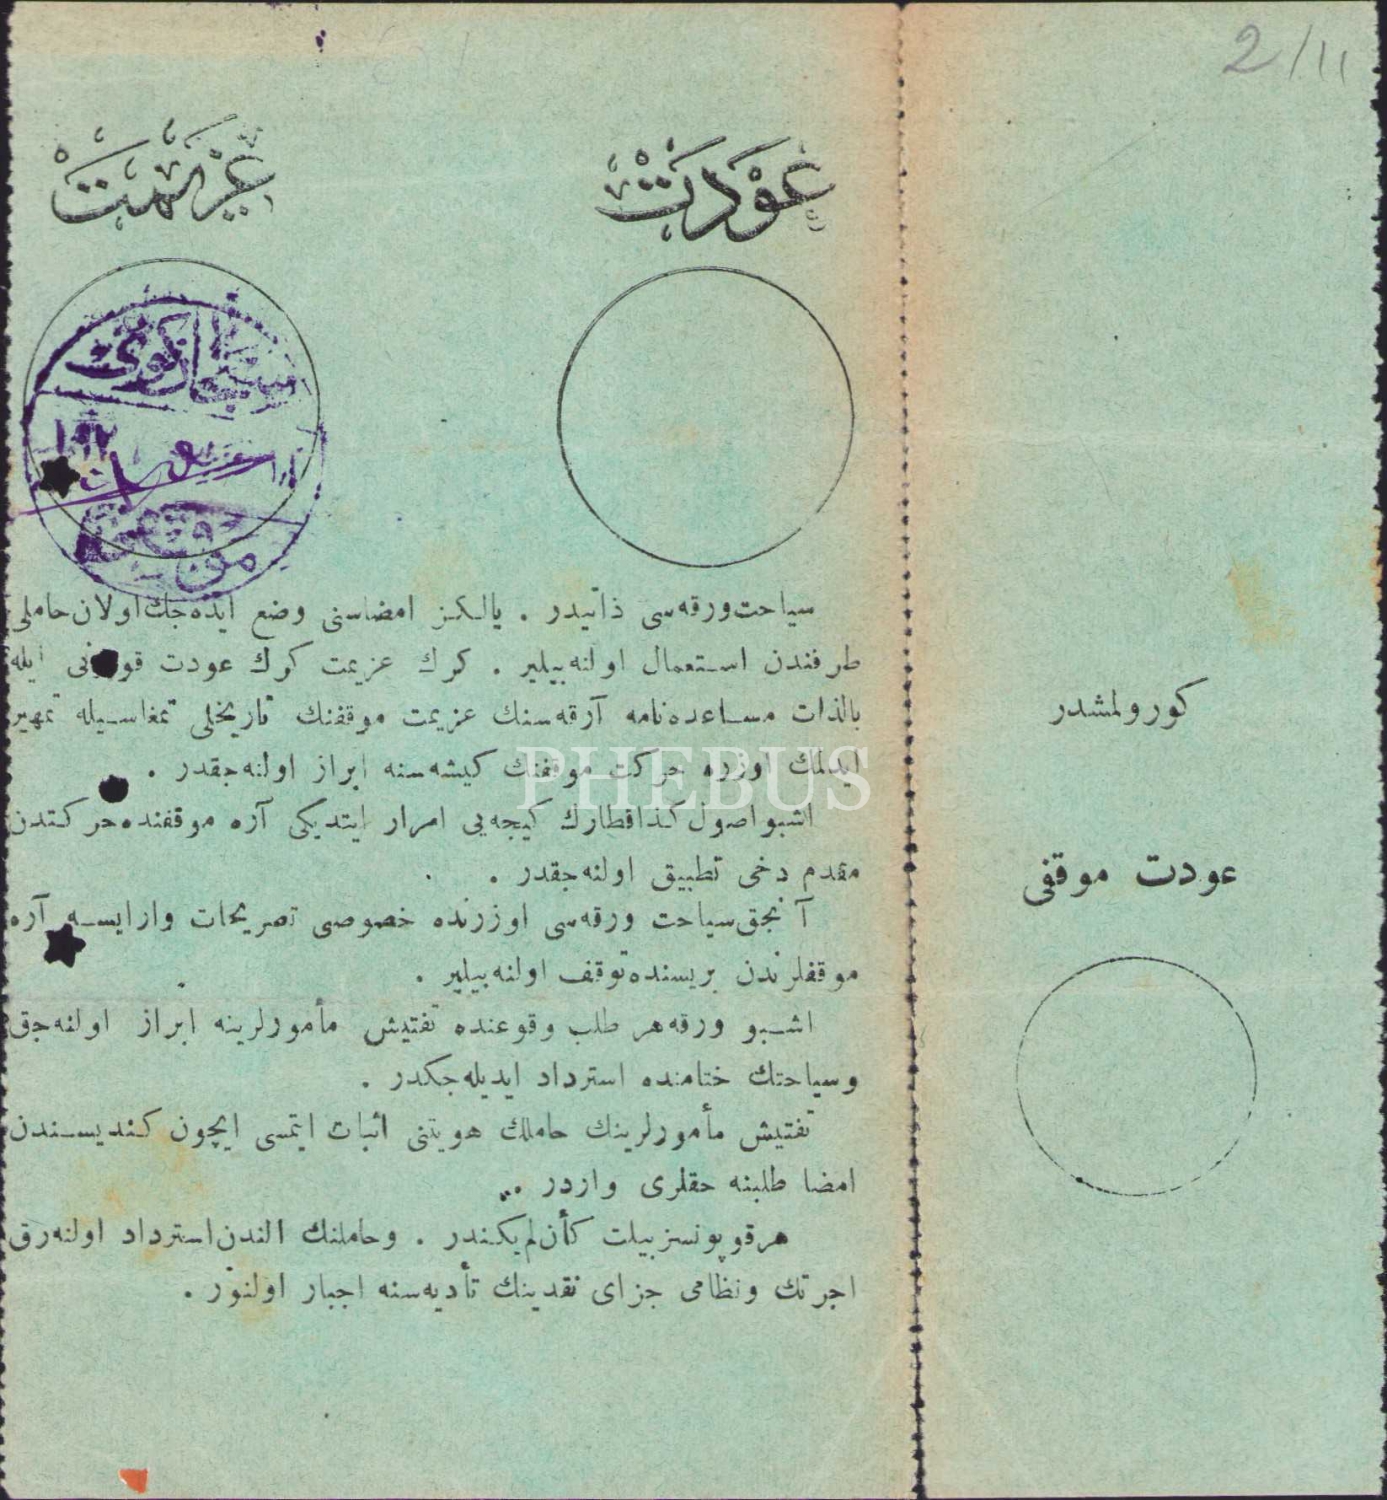 2/11
عزیمت
عودت
سیاحت ورقه‌سی ذاتیدر . یالکز امضاسنی وضع ایده‌جك اولان حاملی
طرفندن استعمال اولنه‌بیلیر . كرك عزیمت كرك عودت قوپونی ایله
بالذات مساعده‌نامه آرقه‌سنك عزیمت موقفنك تاریخلی تمغاسیله تمهیر
ایدلمك اوزره حركت موقفنك كیشه‌سنه ابراز اولنه‌جقدر .
اشبو اصول كذا قطارك كیجه‌یی امرار ایتدیكی آره موقفنده حركتدن
مقدم دخی تطبیق اولنه‌جقدر .
آنجق سیاحت ورقه‌سی اوزرنده خصوصی تصریحات وارایسه آره
موقفلرندن بریسنده توقف اولنه‌بیلیر .
اشبو ورقه هر طلب وقوعنده تفتیش مأمورلرینه ابراز اولنه‌جق
وسیاحتك ختامنده استرداد ایدیله‌جكدر .
تفتیش مأمورلرینك حاملك هویتنی اثبات ایتمسی ایچون كندیسندن
امضا طلبنه حقلری واردر .
هر قوپونسز بیلت كأن لم یكندر . وحاملنك الندن استرداد اولنه‌رق
اجرتك ونظامی جزای نقدینك تأدیه‌سنه اجبار اولنور .
كورولمشدر
عودت موقفی
PHEBUS